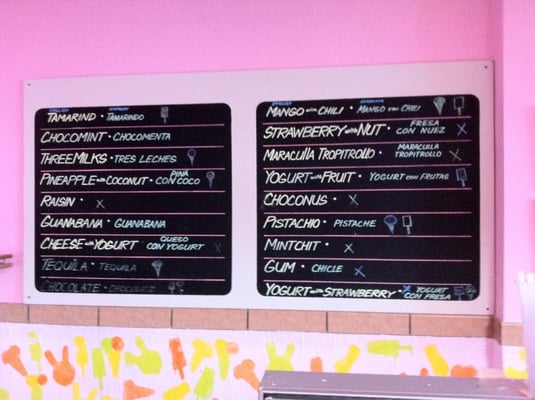 TAMARIND · TAMARINDO
CHOCOMINT · CHOCOMENTA
THREE MILKS · TRES LECHES
PINEAPPLE with COCONUT · PIÑA CON COCO
RAISIN · X
GUANABANA · GUANABANA
CHEESE with YOGURT QUESO CON YOGURT X
TEQUILA · TEQUILA
CHOCOLATE · CHOCOLATE
ENGLISH
MANGO with CHILI · MANGO con CHILI
STRAWBERRY with NUT · FRESA CON NUEZ X
MARACUILLA TROPITROLLO · MARACUILLA TROPITROLLO X
YOGURT with FRUIT · YOGURT CON FRUTAS
CHOCONUS · X
PISTACHIO · PISTACHE
MINTCHIT · X
GUM · CHICLE X
YOGURT with STRAWBERRY · X YOGURT CON FRESA